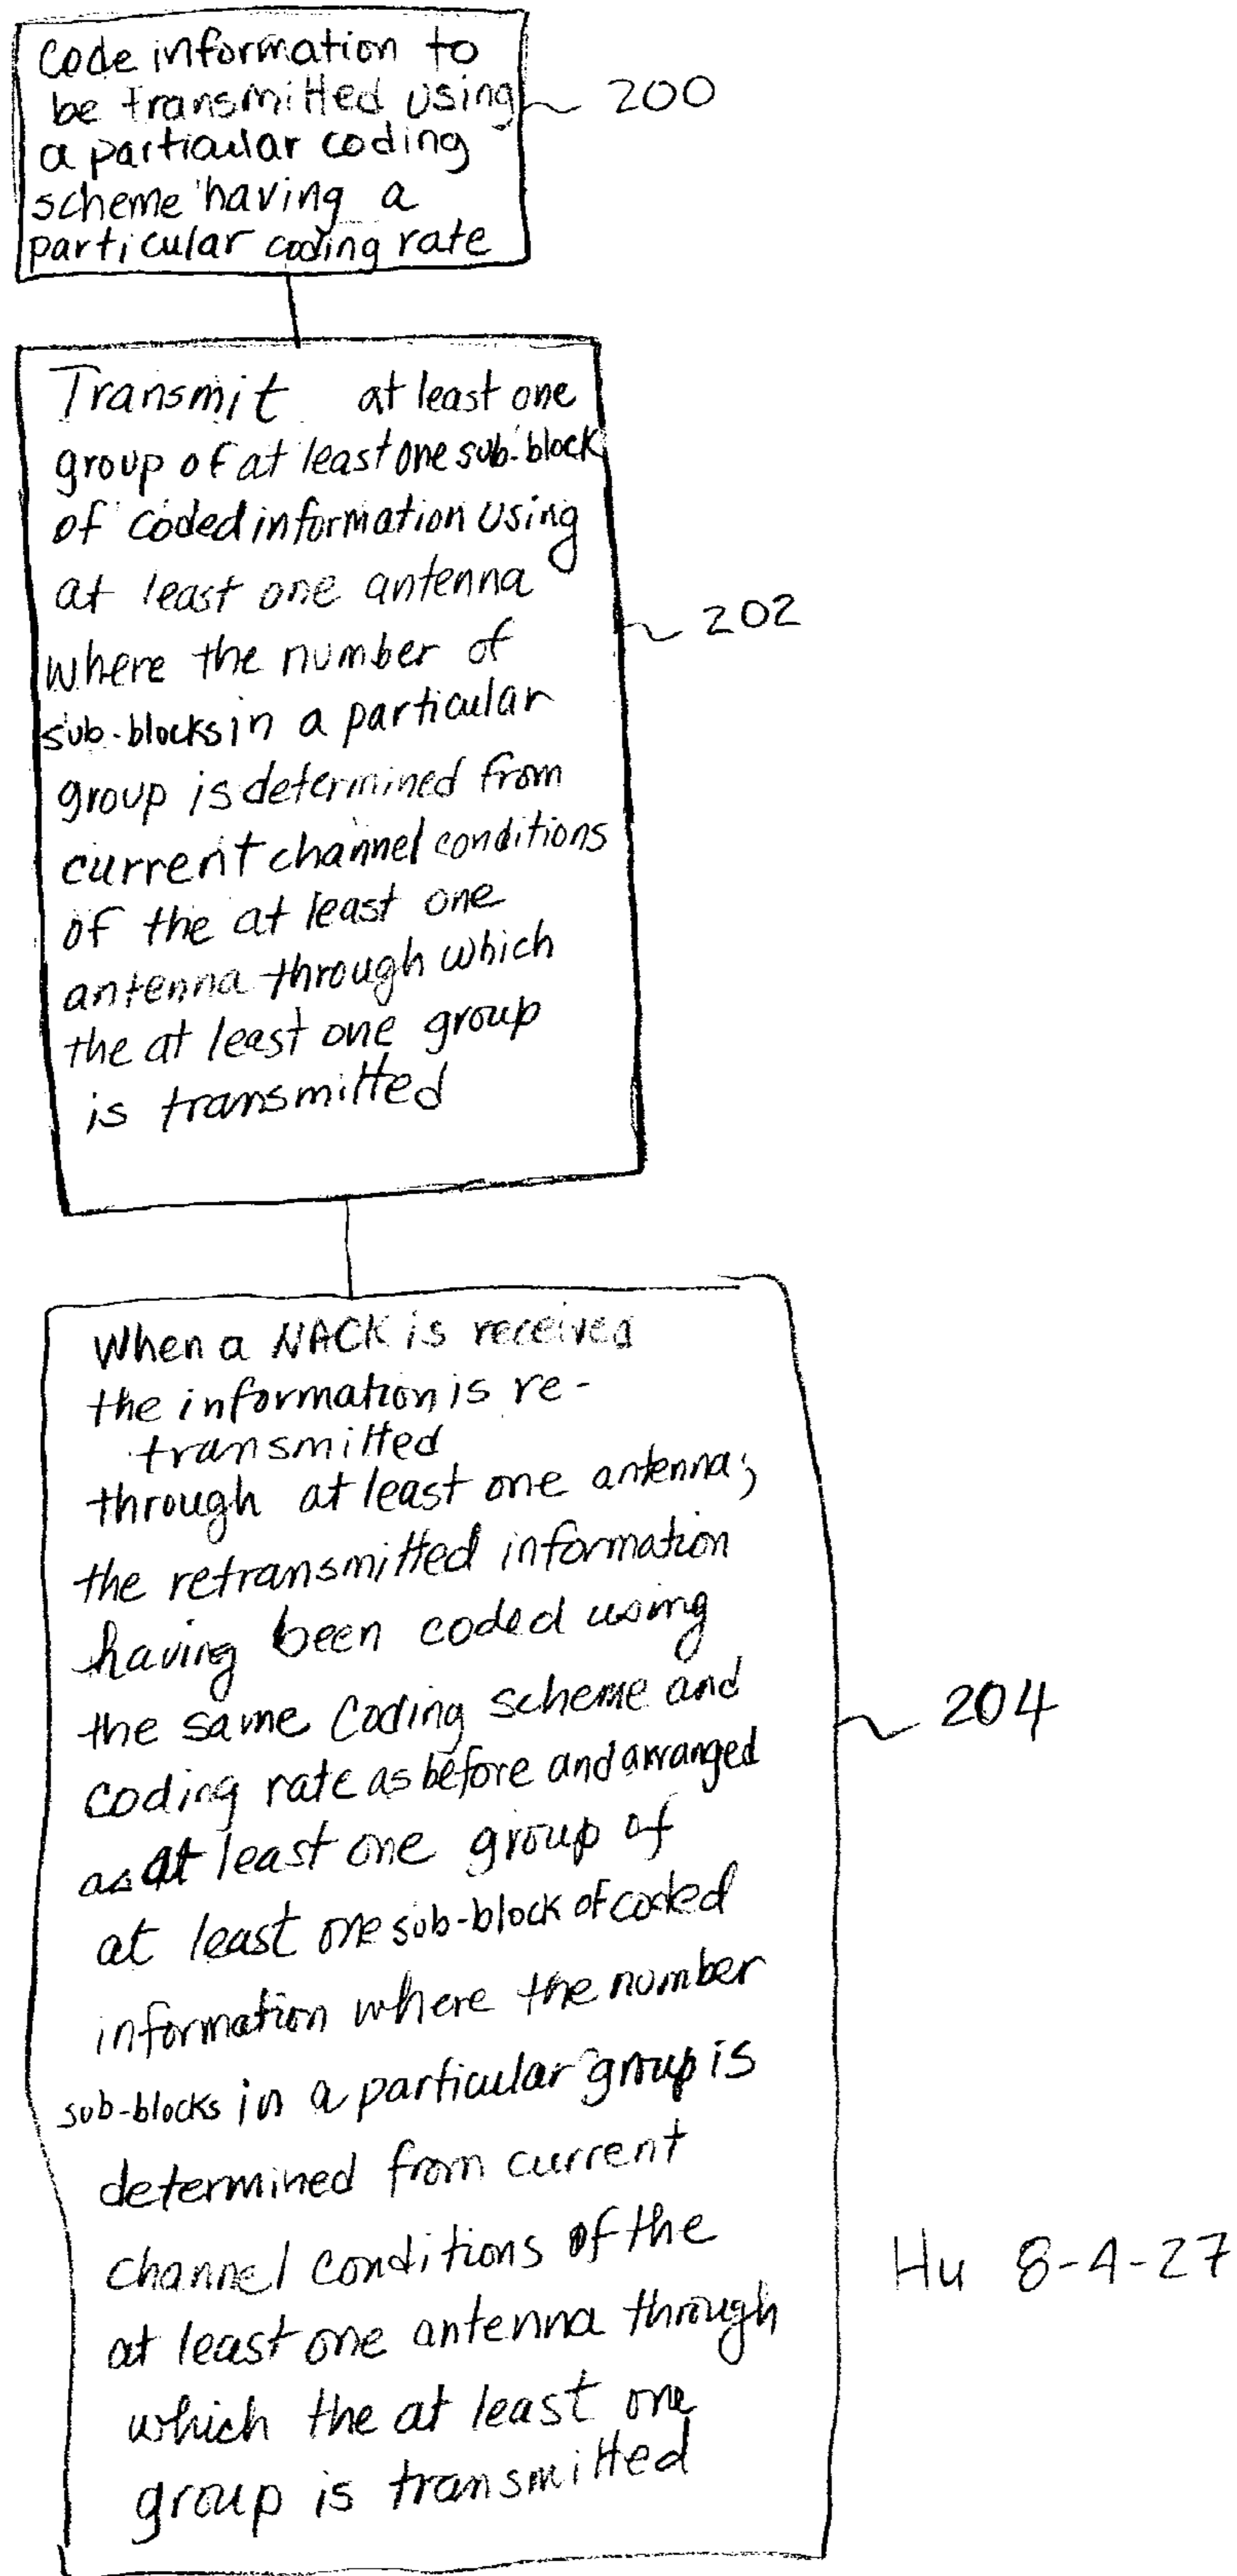 Code information to
be transmitted using
a particular coding
scheme having a
particular coding rate
200
Transmit at least one
group of at least one sub-block
of coded information using
at least one antenna
where the number of
sub-blocks in a particular
group is determined from
current channel conditions
of the at least one
antenna through which
the at least one group
is transmitted
202
When a NACK is received
the information is re-
transmitted
through at least one antenna;
the retransmitted information
having been coded using
the same coding scheme and
coding rate as before and arranged
as at least one group of
at least one sub-block of coded
information where the number
sub-blocks in a particular group is
determined from current
channel conditions of the
at least one antenna through
which the at least one
group is transmitted
204
Hu 8-4-27